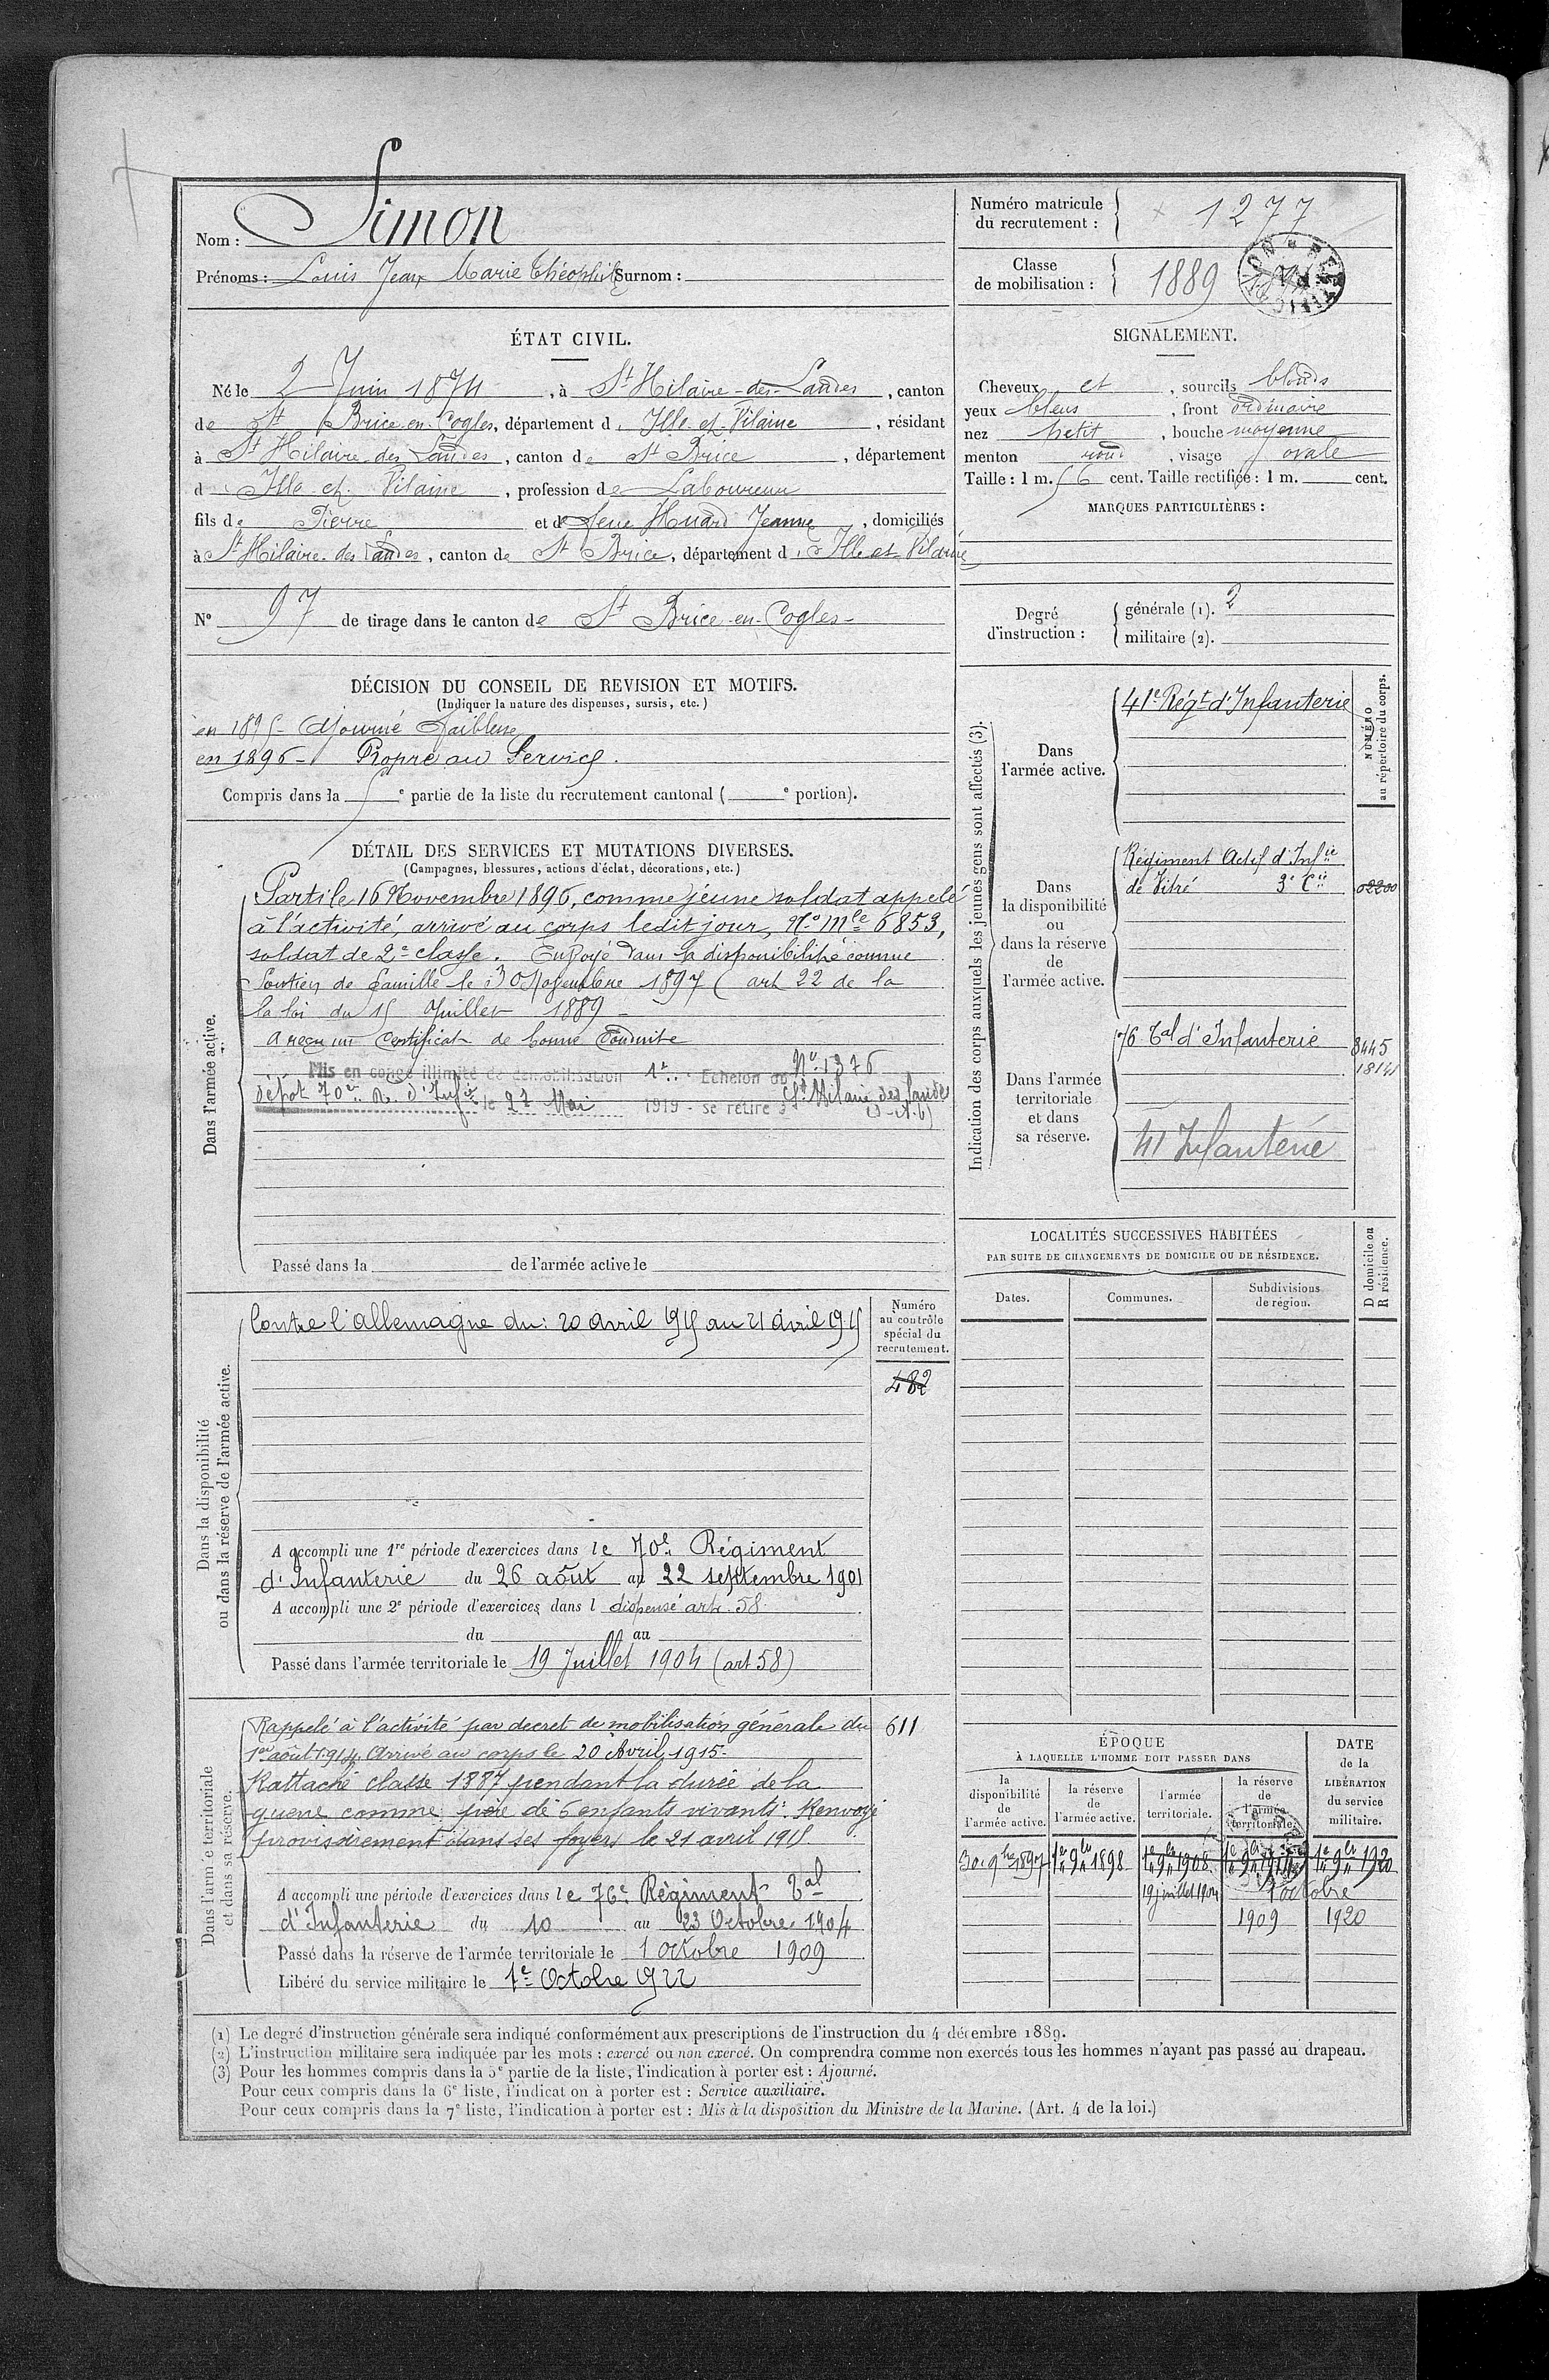 Nom : Simon
Prénoms : Louis Jean Marie Théophile Surnom :
Numéro matricule du recrutement : 1277
Classe de mobilisation : 1889
ÉTAT CIVIL.
Né le 2 Juin 1874, à St Hilaire-des-Landes, canton
de St Brice-en-Cogles, département d'Ille-et-Vilaine, résidant
à St Hilaire des Landes, canton de St Brice, département
d'Ille et Vilaine, profession de Laboureur
fils de Pierre et de feue Huard Jeanne, domiciliés
à St Hilaire-des-Landes, canton de St Brice, département d'Ille et Vilaine
N° 97 de tirage dans le canton de St Brice-en-Cogles-
SIGNALEMENT.
Cheveux et, sourcils blonds
yeux bleus, front ordinaire
nez petit, bouche moyenne
menton rond, visage ovale
Taille : 1 m. 56 cent. Taille rectifiée : 1 m. cent.
MARQUES PARTICULIÈRES :
Degré d'instruction : générale (1). 2
militaire (2).
DÉCISION DU CONSEIL DE REVISION ET MOTIFS.
(Indiquer la nature des dispenses, sursis, etc.)
en 1895- Ajourné Faiblesse
en 1896- Propre au Service.
Compris dans la e partie de la liste du recrutement cantonal ( e portion).
DÉTAIL DES SERVICES ET MUTATIONS DIVERSES.
(Campagnes, blessures, actions d'éclat, décorations, etc.)
Dans l'armée active.
Parti le 16 Novembre 1896, comme jeune soldat appelé
à l'activité, arrivé au corps ledit jour, No Mle 6853,
soldat de 2e classe. Envoyé dans la disponibilité comme
Soutien de famille le 30 Novembre 1897 (art 22 de la
la loi du 15 Juillet 1889-
a reçu un Certificat de bonne Conduite
Mis en congé illimité de démobilisation 1er Echelon No 1376
dépôt 70e Ré. d'Infie le 27 Mai 1919 - se retire à St Hilaire des Landes
Passé dans la de l'armée active le
Indication des corps auxquels les jeunes gens sont affectés (3).
NUMÉRO au répertoire du corps.
Dans l'armée active.
41e Régt d'Infanterie
Dans la disponibilité ou dans la réserve de l'armée active.
Régiment Actif d'Infie
de Vitré 3e Cie 02200
Dans l'armée territoriale et dans sa réserve.
76 Tal d'Infanterie 8445
18141
41 Infanterie
Dans la disponibilité ou dans la réserve de l'armée active.
Contre l'allemagne du: 20 avril 1915 au 21 avril 1915
Numéro au contrôle spécial du recrutement.
482
A accompli une 1re période d'exercices dans le 70e Régiment
d'Infanterie du 26 août au 22 septembre 1901
A accompli une 2e période d'exercices dans l dispensé art. 58
du au
Passé dans l'armée territoriale le 19 Juillet 1904 (art 58)
Dans l'armée territoriale et dans sa réserve.
Rappelé à l'activité par decret de mobilisation générale du 611
1er août 1914. Arrivé au corps le 20 Avril 1915-
Rattaché classe 1887 pendant la durée de la
guerre comme père de 6 enfants vivants. Renvoyé
provisoirement dans ses foyers le 21 avril 1915.
A accompli une période d'exercices dans le 76e Régiment Tal
d'Infanterie du 10 au 23 Octobre 1904
Passé dans la réserve de l'armée territoriale le 1 octobre 1909
Libéré du service militaire le 1er Octobre 1922
LOCALITÉS SUCCESSIVES HABITÉES
PAR SUITE DE CHANGEMENTS DE DOMICILE OU DE RÉSIDENCE.
Dates. Communes. Subdivisions de région. D domicile ou R résidence.
ÉPOQUE
À LAQUELLE L'HOMME DOIT PASSER DANS
la disponibilité de l'armée active. la réserve de l'armée active. l'armée territoriale. la réserve de l'armée territoriale.
DATE de la LIBÉRATION du service militaire.
30. 9bre 1897 1er 9bre 1898 1er 9bre 1908 1er 9bre 1914 1er 9bre 1920
19 juillet 1904 1 octobre
1909 1920
(1) Le degré d'instruction générale sera indiqué conformément aux prescriptions de l'instruction du 4 décembre 1889.
(2) L'instruction militaire sera indiquée par les mots : exercé ou non exercé. On comprendra comme non exercés tous les hommes n'ayant pas passé au drapeau.
(3) Pour les hommes compris dans la 5e partie de la liste, l'indication à porter est : Ajourné.
Pour ceux compris dans la 6e liste, l'indication à porter est : Service auxiliaire.
Pour ceux compris dans la 7e liste, l'indication à porter est : Mis à la disposition du Ministre de la Marine. (Art. 4 de la loi.)